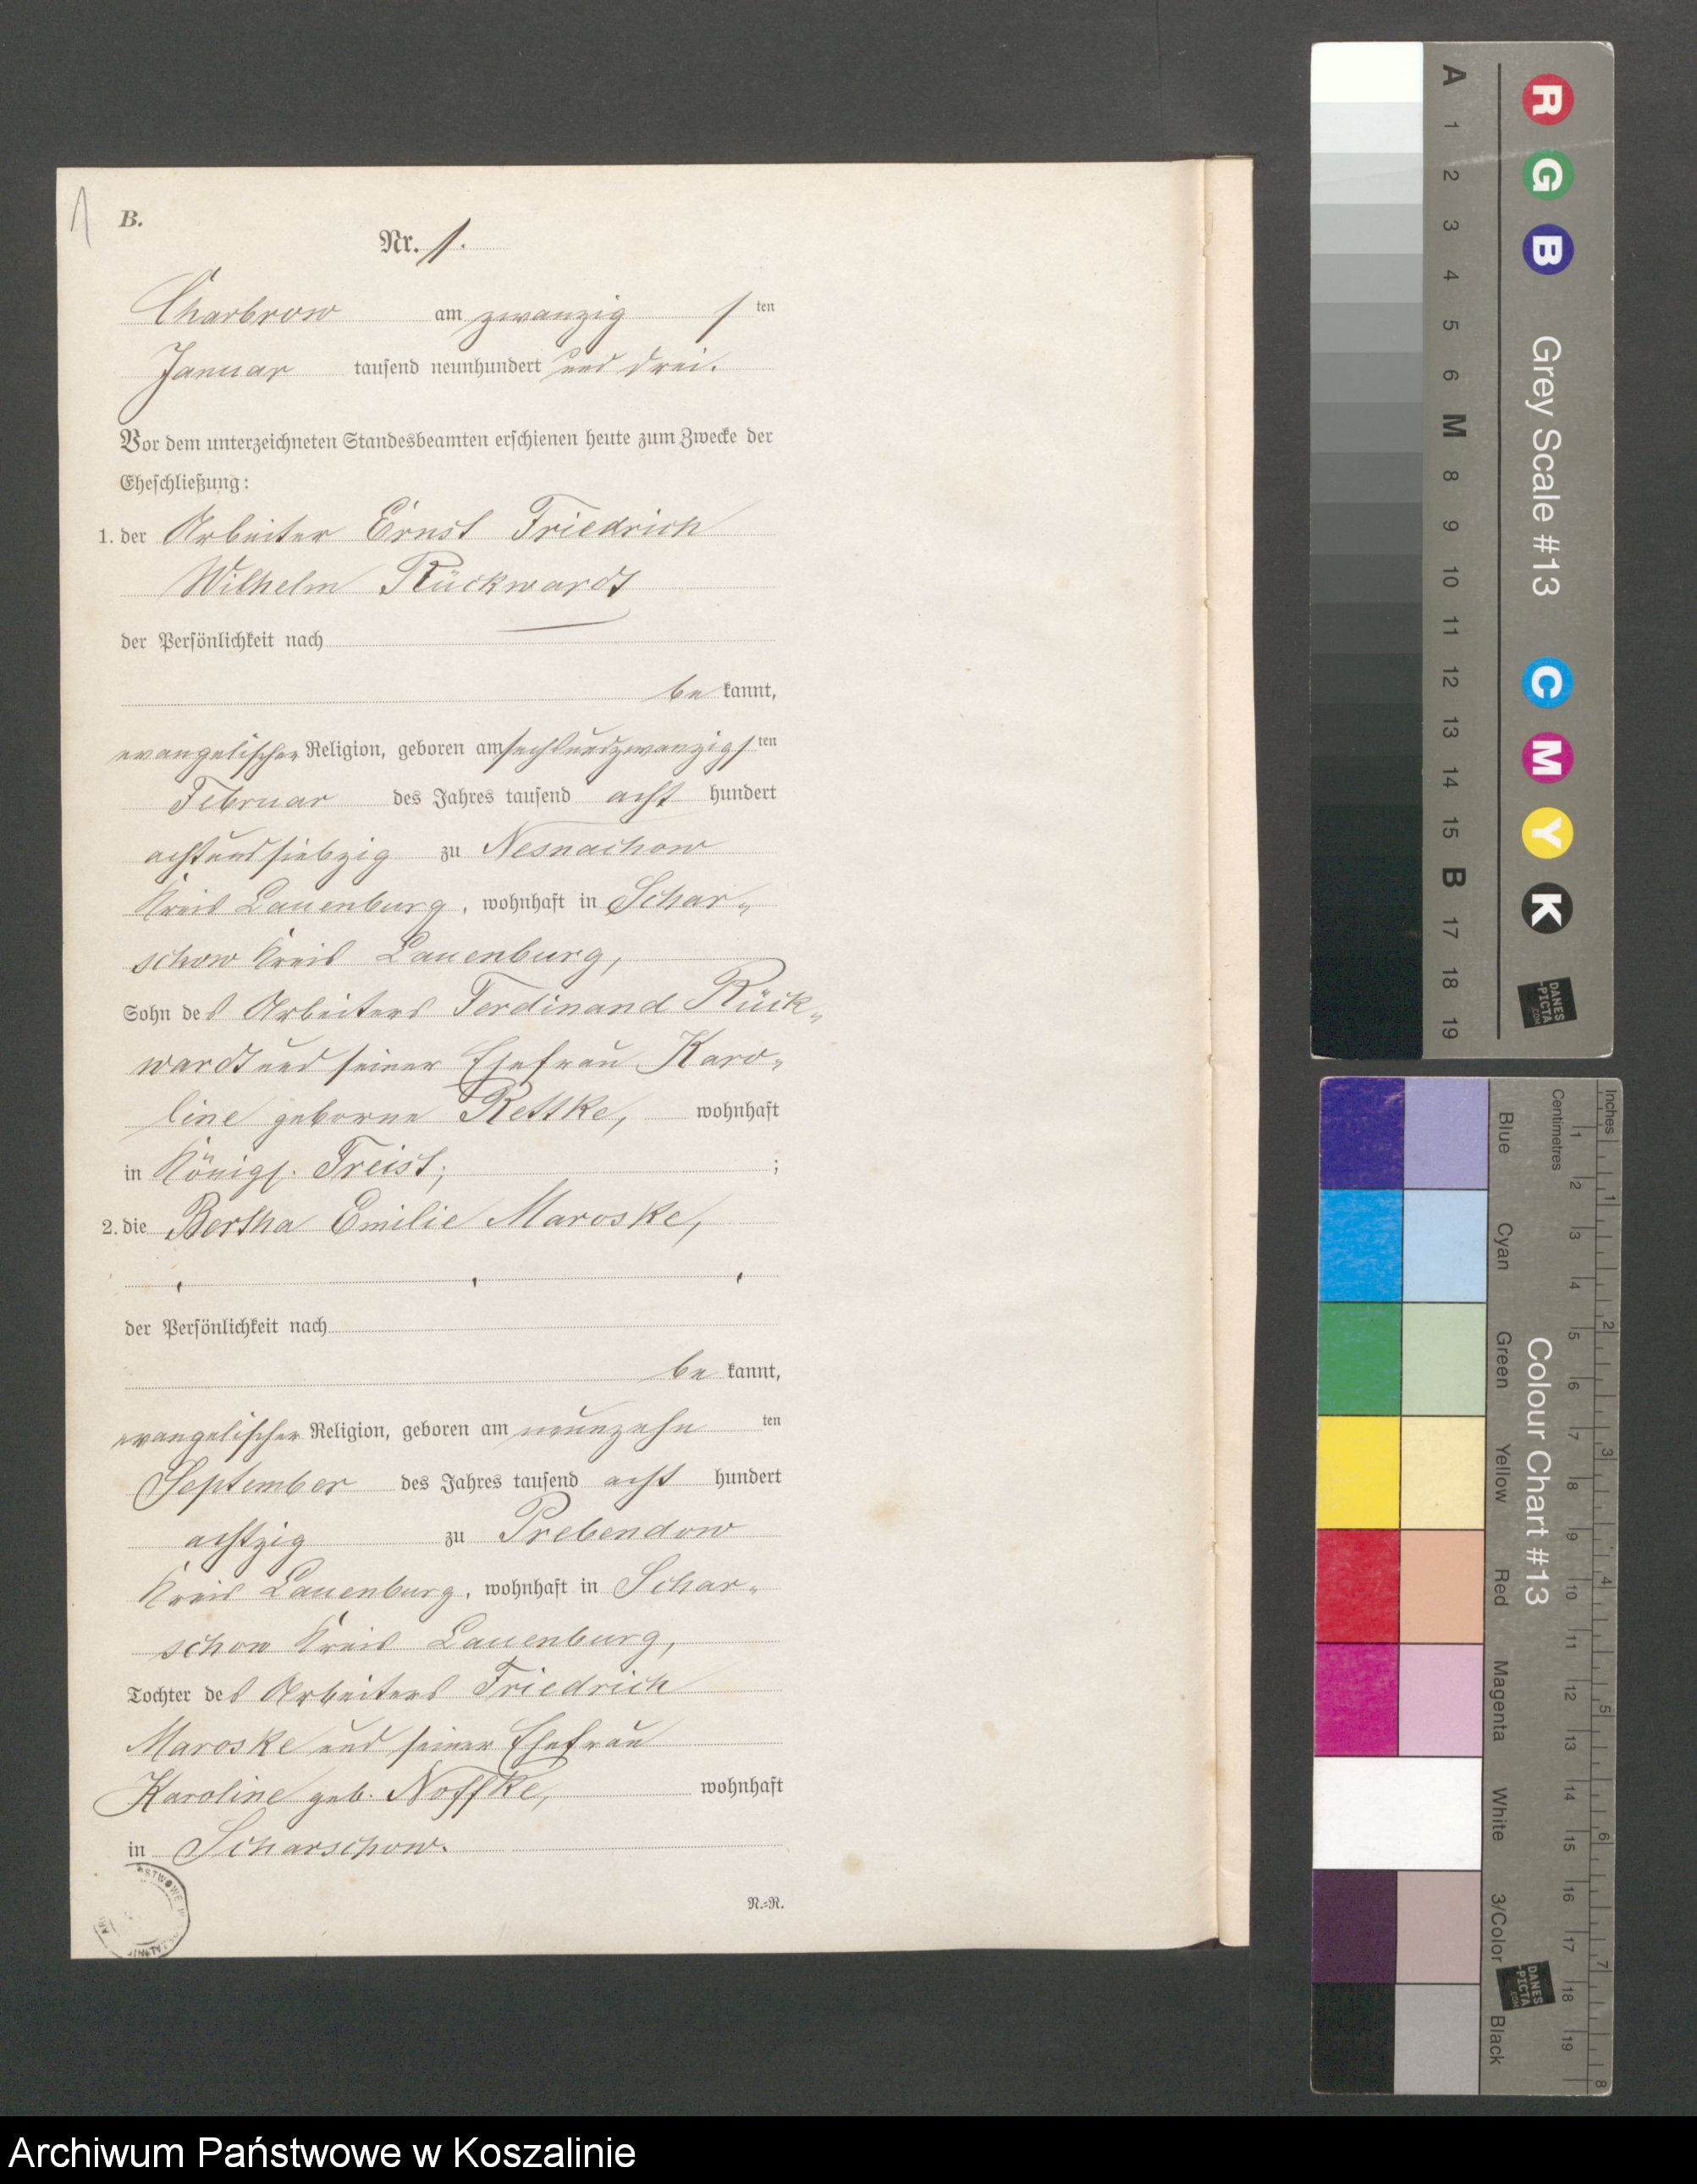 1
B.
Nr. 1.
Charbrow am zwanzig s ten
Januar tausend neunhundert und drei.
Vor dem unterzeichneten Standesbeamten erschienen heute zum Zwecke der
Eheschließung:
1. der Arbeiter Ernst Friedrich
Wilhelm Rückwardt
der Persönlichkeit nach
be kannt,
evangelischer Religion, geboren am sechsundzwanzigs ten
Februar des Jahres tausend acht hundert
achtundsiebzig zu Nesnachow
Kreis Lauenburg, wohnhaft in Schar-
schow Kreis Lauenburg,
Sohn des Arbeiters Ferdinand Rück-
wardt und seiner Ehefrau Karo-
line geborne Rettke, wohnhaft
in Königl. Freist; ;
2. die Bertha Emilie Maroske,
der Persönlichkeit nach
be kannt,
evangelischer Religion, geboren am neunzehn ten
September des Jahres tausend acht hundert
achtzig zu Prebendow
Kreis Lauenburg, wohnhaft in Schar-
schow Kreis Lauenburg,
Tochter des Arbeiters Friedrich
Maroske und seiner Ehefrau
Karoline geb. Noffke, wohnhaft
in Scharschow.
R.=R.
A 1 2 3 4 5 6 M 8 9 10 11 12 13 14 15 B 17 18 19
R G B Grey Scale #13 C M Y K
DANES
-PICTA
.COM
Inches 1 2 3 4 5 6 7 8
Centimetres 1 2 3 4 5 6 7 8 9 10 11 12 13 14 15 16 17 18 19
Colour Chart #13
Blue Cyan Green Yellow Red Magenta White 3/Color Black
DANES
-PICTA
.COM
Archiwum Państwowe w Koszalinie